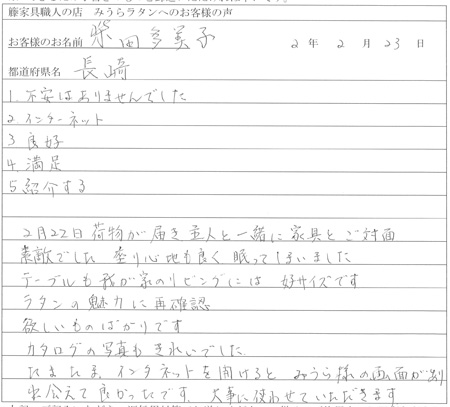 藤家具職人の店　みうらラタンへのお客様の声
お客様のお名前　柴田多美子　2年2月23日
都道府県名　長崎
1. 不安はありませんでした
2 インターネット
3 良好
4. 満足
5 紹介する
2月22日荷物が届き主人と一緒に家具とご対面
素敵でした 座り心地も良く眠ってしまいました
テーブルも我が家のリビングには好サイズです
ラタンの魅力に再確認
欲しいものばかりです
カタログの写真もきれいでした
たまたま、インタネットを開けるとみうら様の画面が
出会えて良かったです。大事に使わせていただきます